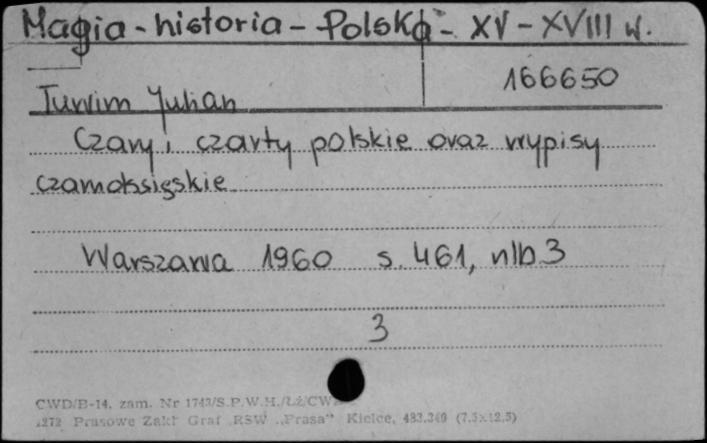 Magia - historia - Polska - XV - XVIII w.
166650
Tuwim Julian
Czary i czarty polskie oraz wypisy
czarnoksięskie
Warszawa 1960 s. 461, nlb 3
3
CWD/B-14. zam. Nr 1743/S.P.W.H./Łż/CW
1272 Prasowe Zakł Graf RSW „Prasa" Kielce, 483.349 (7.5x12.5)